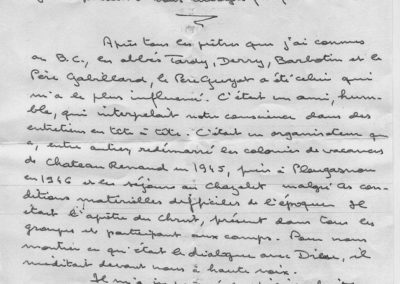 Après tous les prêtres que j'ai connus
au B.C., les abbés Tardy, Derry, Barbotin et le
Père Gabillard, le Père Guyot a été celui qui
m'a le plus influencé. C'était un ami, hum-
ble, qui interpelait notre conscience dans des
entretiens en tête à tête. C'était un organisateur qui
a, entre autres, redémarré les colonies de vacances
de Chateau Renard en 1945, puis à Plougasnou
en 1946 et les séjours au Chazelet malgré les con-
ditions matérielles difficiles de l'époque. Il
était l'apôtre du Christ, présent dans tous les
groupes et participant aux camps. Pour nous
montrer ce qu'était le dialogue avec Dieu, il
méditait devant nous à haute voix.
Il m'a